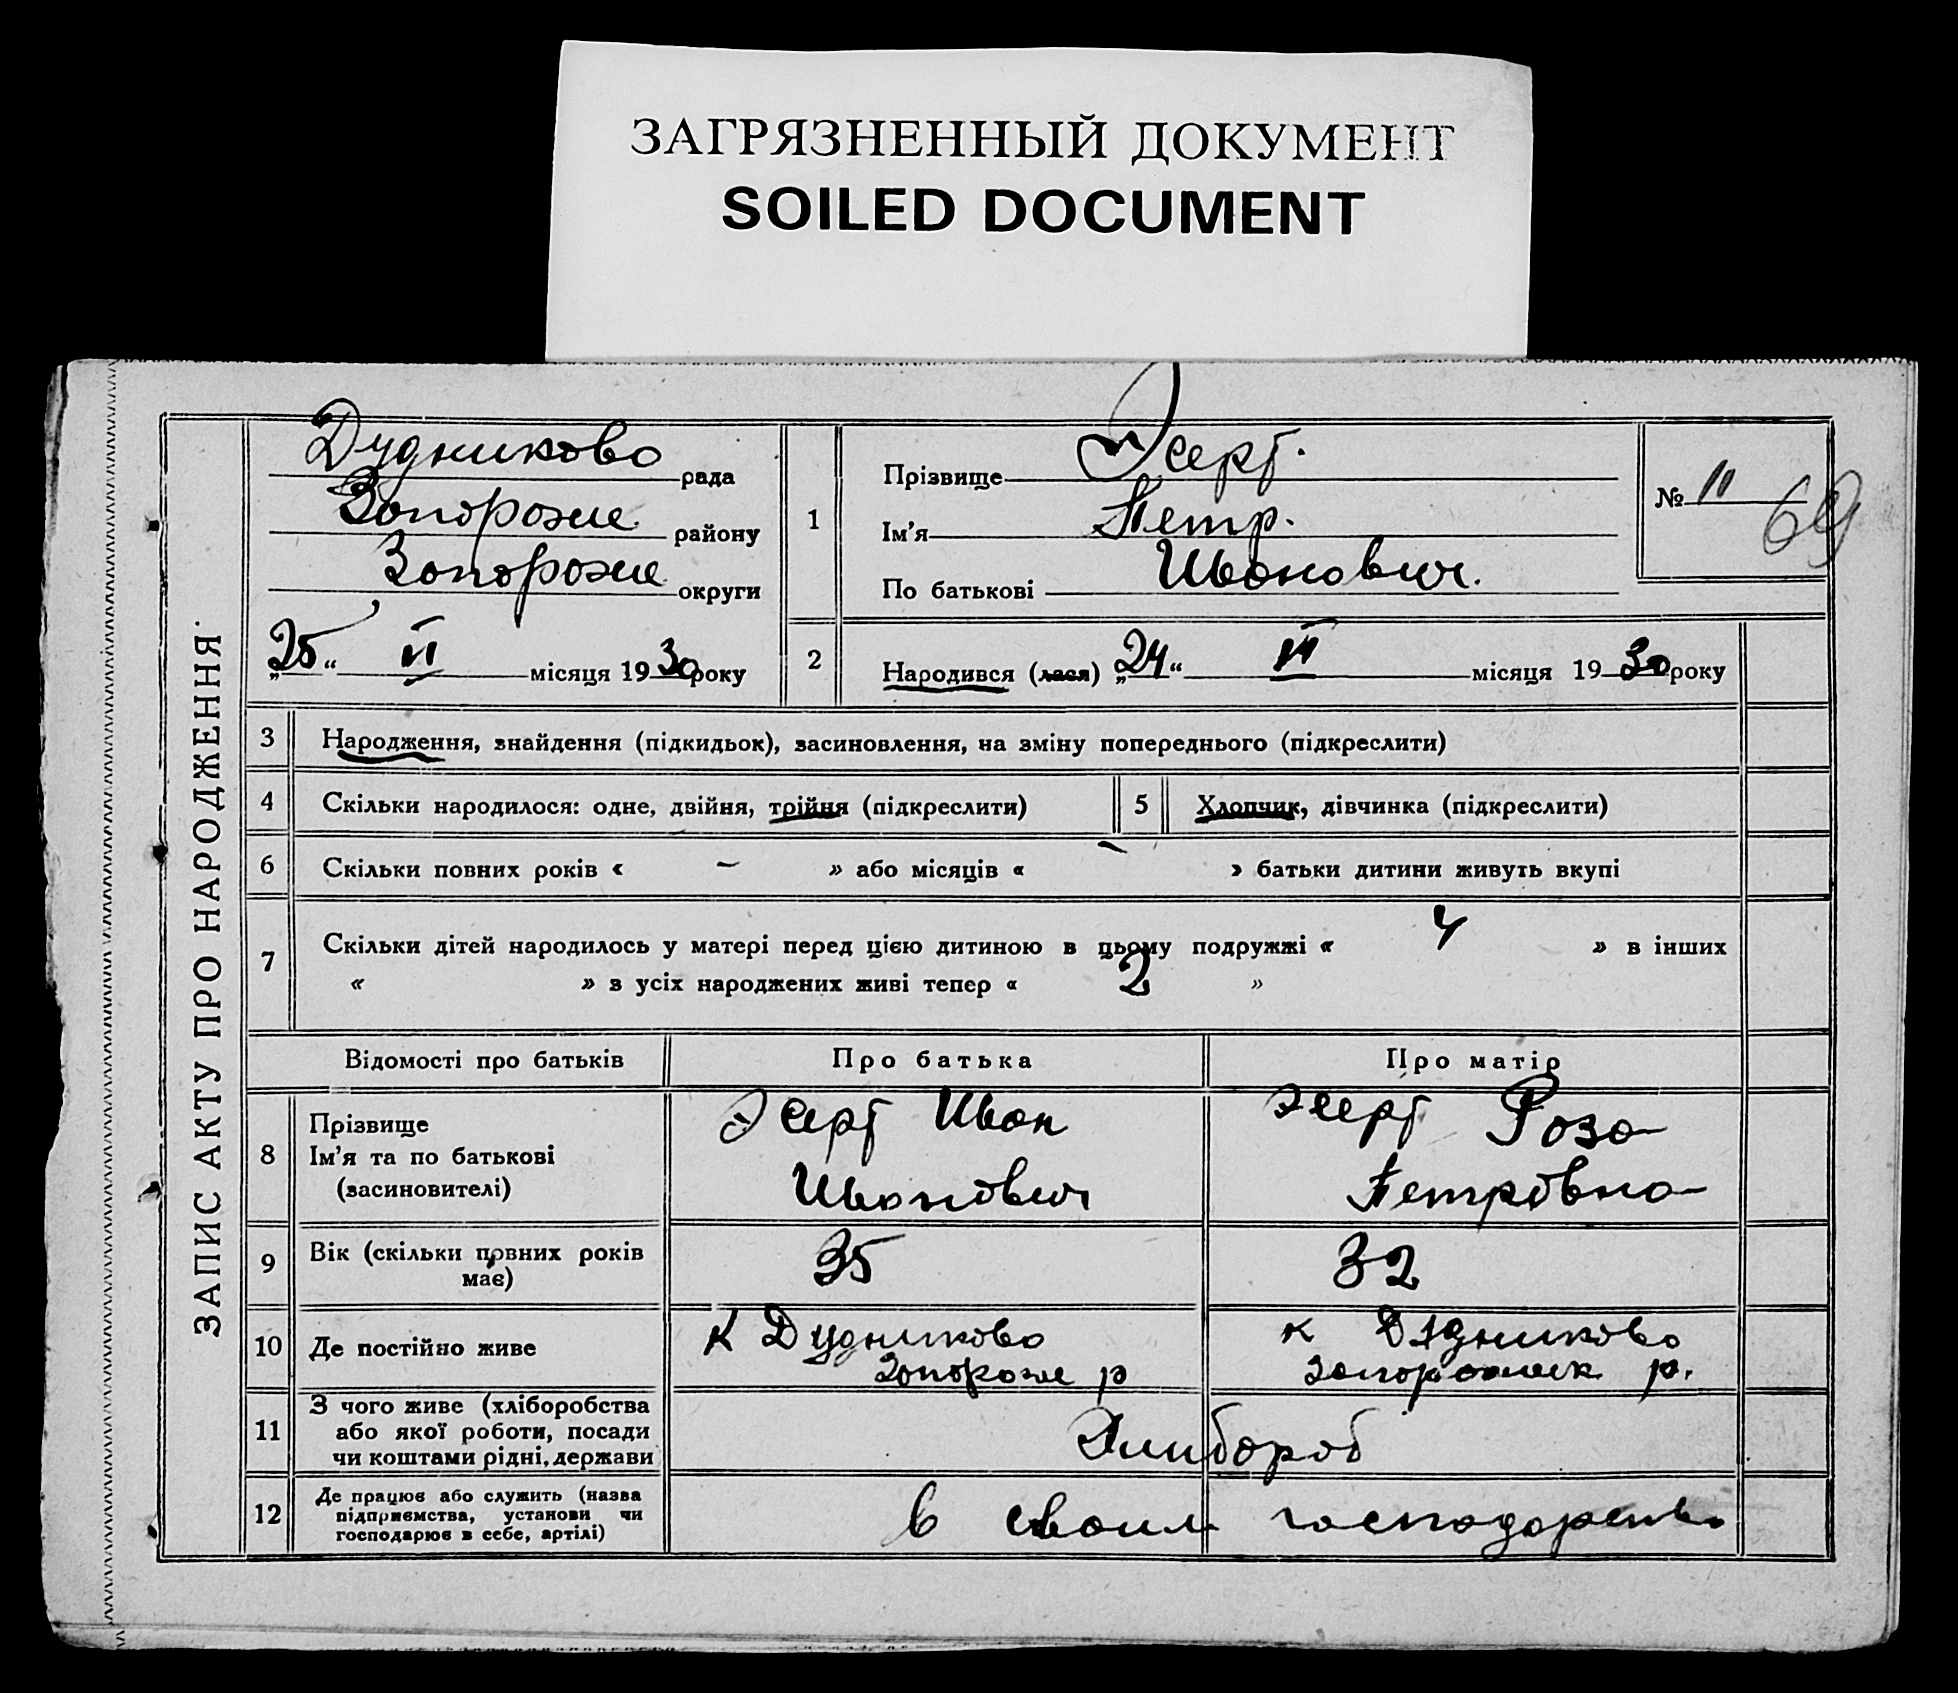 ЗАГРЯЗНЕННЫЙ ДОКУМЕНТ
SOILED DOCUMENT
ЗАПИС АКТУ ПРО НАРОДЖЕННЯ
Дудниково рада
Запороже району
Запороже округи
„25“ VI місяця 1930 року
1
Прізвище
Ім'я Петр.
По батькові Иванович.
№ 11
69
2
Народився (лася) „24“ VI місяця 1930 року
3 Народження, знайдення (підкидьок), засиновлення, на зміну попереднього (підкреслити)
4 Скільки народилося: одне, двійня, трійня (підкреслити)
5 Хлопчик, дівчинка (підкреслити)
6 Скільки повних років « – » або місяців « – » батьки дитини живуть вкупі
7 Скільки дітей народилось у матері перед цією дитиною в цьому подружжі « 4 » в інших
« » з усіх народжених живі тепер « 2 »
Відомості про батьків
Про батька
Про матір
8
Прізвище
Ім'я та по батькові
(засиновителі)
Иван
Иванович
Роза
Петровна
9
Вік (скільки повних років
має)
35
32
10 Де постійно живе
К Дудниково
Запороже р
к Дудниково
Запорожск р.
11
З чого живе (хліборобства
або якої роботи, посади
чи коштами рідні, держави
Хлибороб
12
Де працює або служить (назва
підприємства, установи чи
господарює в себе, артілі)
в своим господарстві